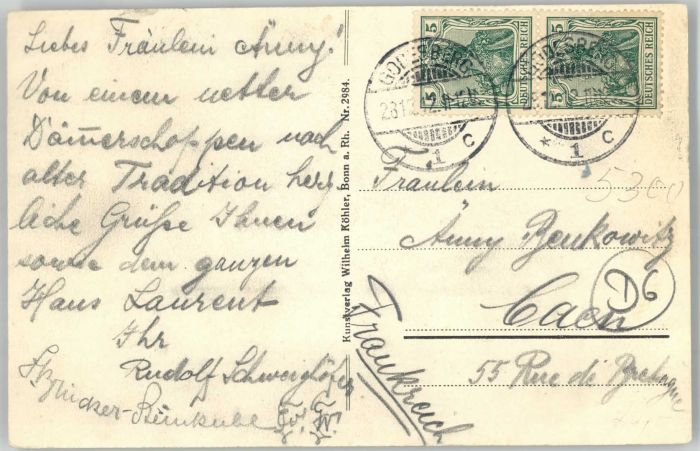 Liebes Fräulein Änny!
Von einem netter
Dämmerschoppen nach
alter Tradition herz-
liche Grüße Ihnen
sowie dem ganzen
Haus Laurent
Ihr
Rudolf
Kunstverlag Wilhelm Köhler, Bonn a. Rh. Nr. 2984.
5 DEUTSCHES REICH 5
5 DEUTSCHES REICH 5
GODESBERG
* 1 c
GODESBERG
* 1 c
5300
Fräulein
Änny Benkowitz
Caen
D6
55 Rue de Bretagne
Frankreich